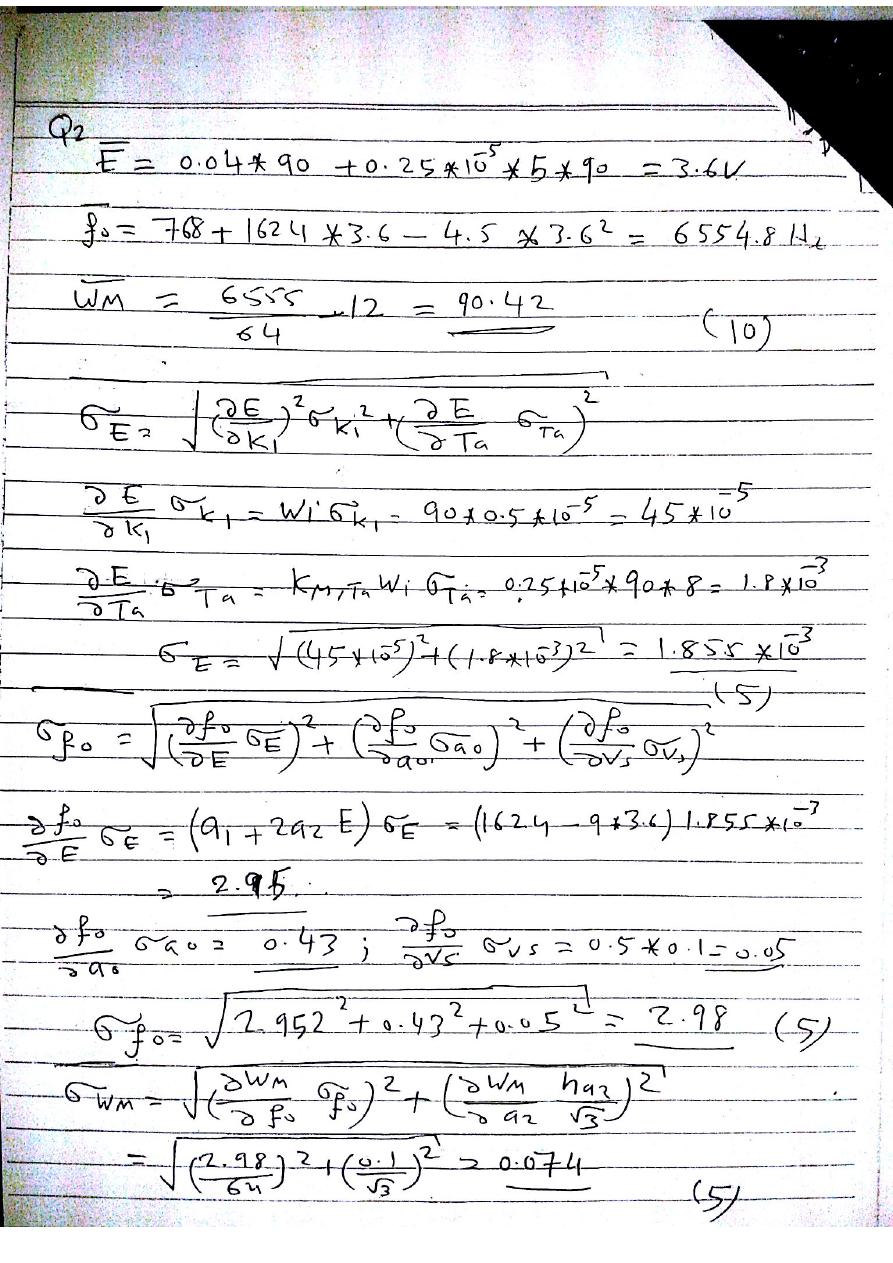 Q2
E̅ = 0.04*90 + 0.25*10⁻⁵*5*90 = 3.6V
f̅o = 768 + 1624*3.6 - 4.5*3.6² = 6554.8 Hz
W̅M = 6555/64 - 12 = 90.42
(10)
σE = √((∂E/∂K₁)² σK₁² + (∂E/∂Ta σTa)²)
∂E/∂K₁ σK₁ = Wi σK₁ = 90*0.5*10⁻⁵ = 45*10⁻⁵
∂E/∂Ta σ²Ta = KM,Ta Wi σTa = 0.25*10⁻⁵*90*8 = 1.8*10⁻³
σE = √((45*10⁻⁵)² + (1.8*10⁻³)²) = 1.855*10⁻³
(5)
σfo = √((∂fo/∂E σE)² + (∂fo/∂ao σao)² + (∂fo/∂Vs σVs)²)
∂fo/∂E σE = (a₁ + 2a₂E) σE = (1624 - 9*3.6) 1.855*10⁻³
= 2.95
∂fo/∂ao σao = 0.43 ; ∂fo/∂Vs σVs = 0.5*0.1 = 0.05
σfo = √(2.952² + 0.43² + 0.05²) = 2.98 (5)
σWM = √((∂WM/∂fo σfo)² + (∂WM/∂a₂ ha₂/√3)²)
= √((2.98/64)² + (0.1/√3)²) = 0.074
(5)